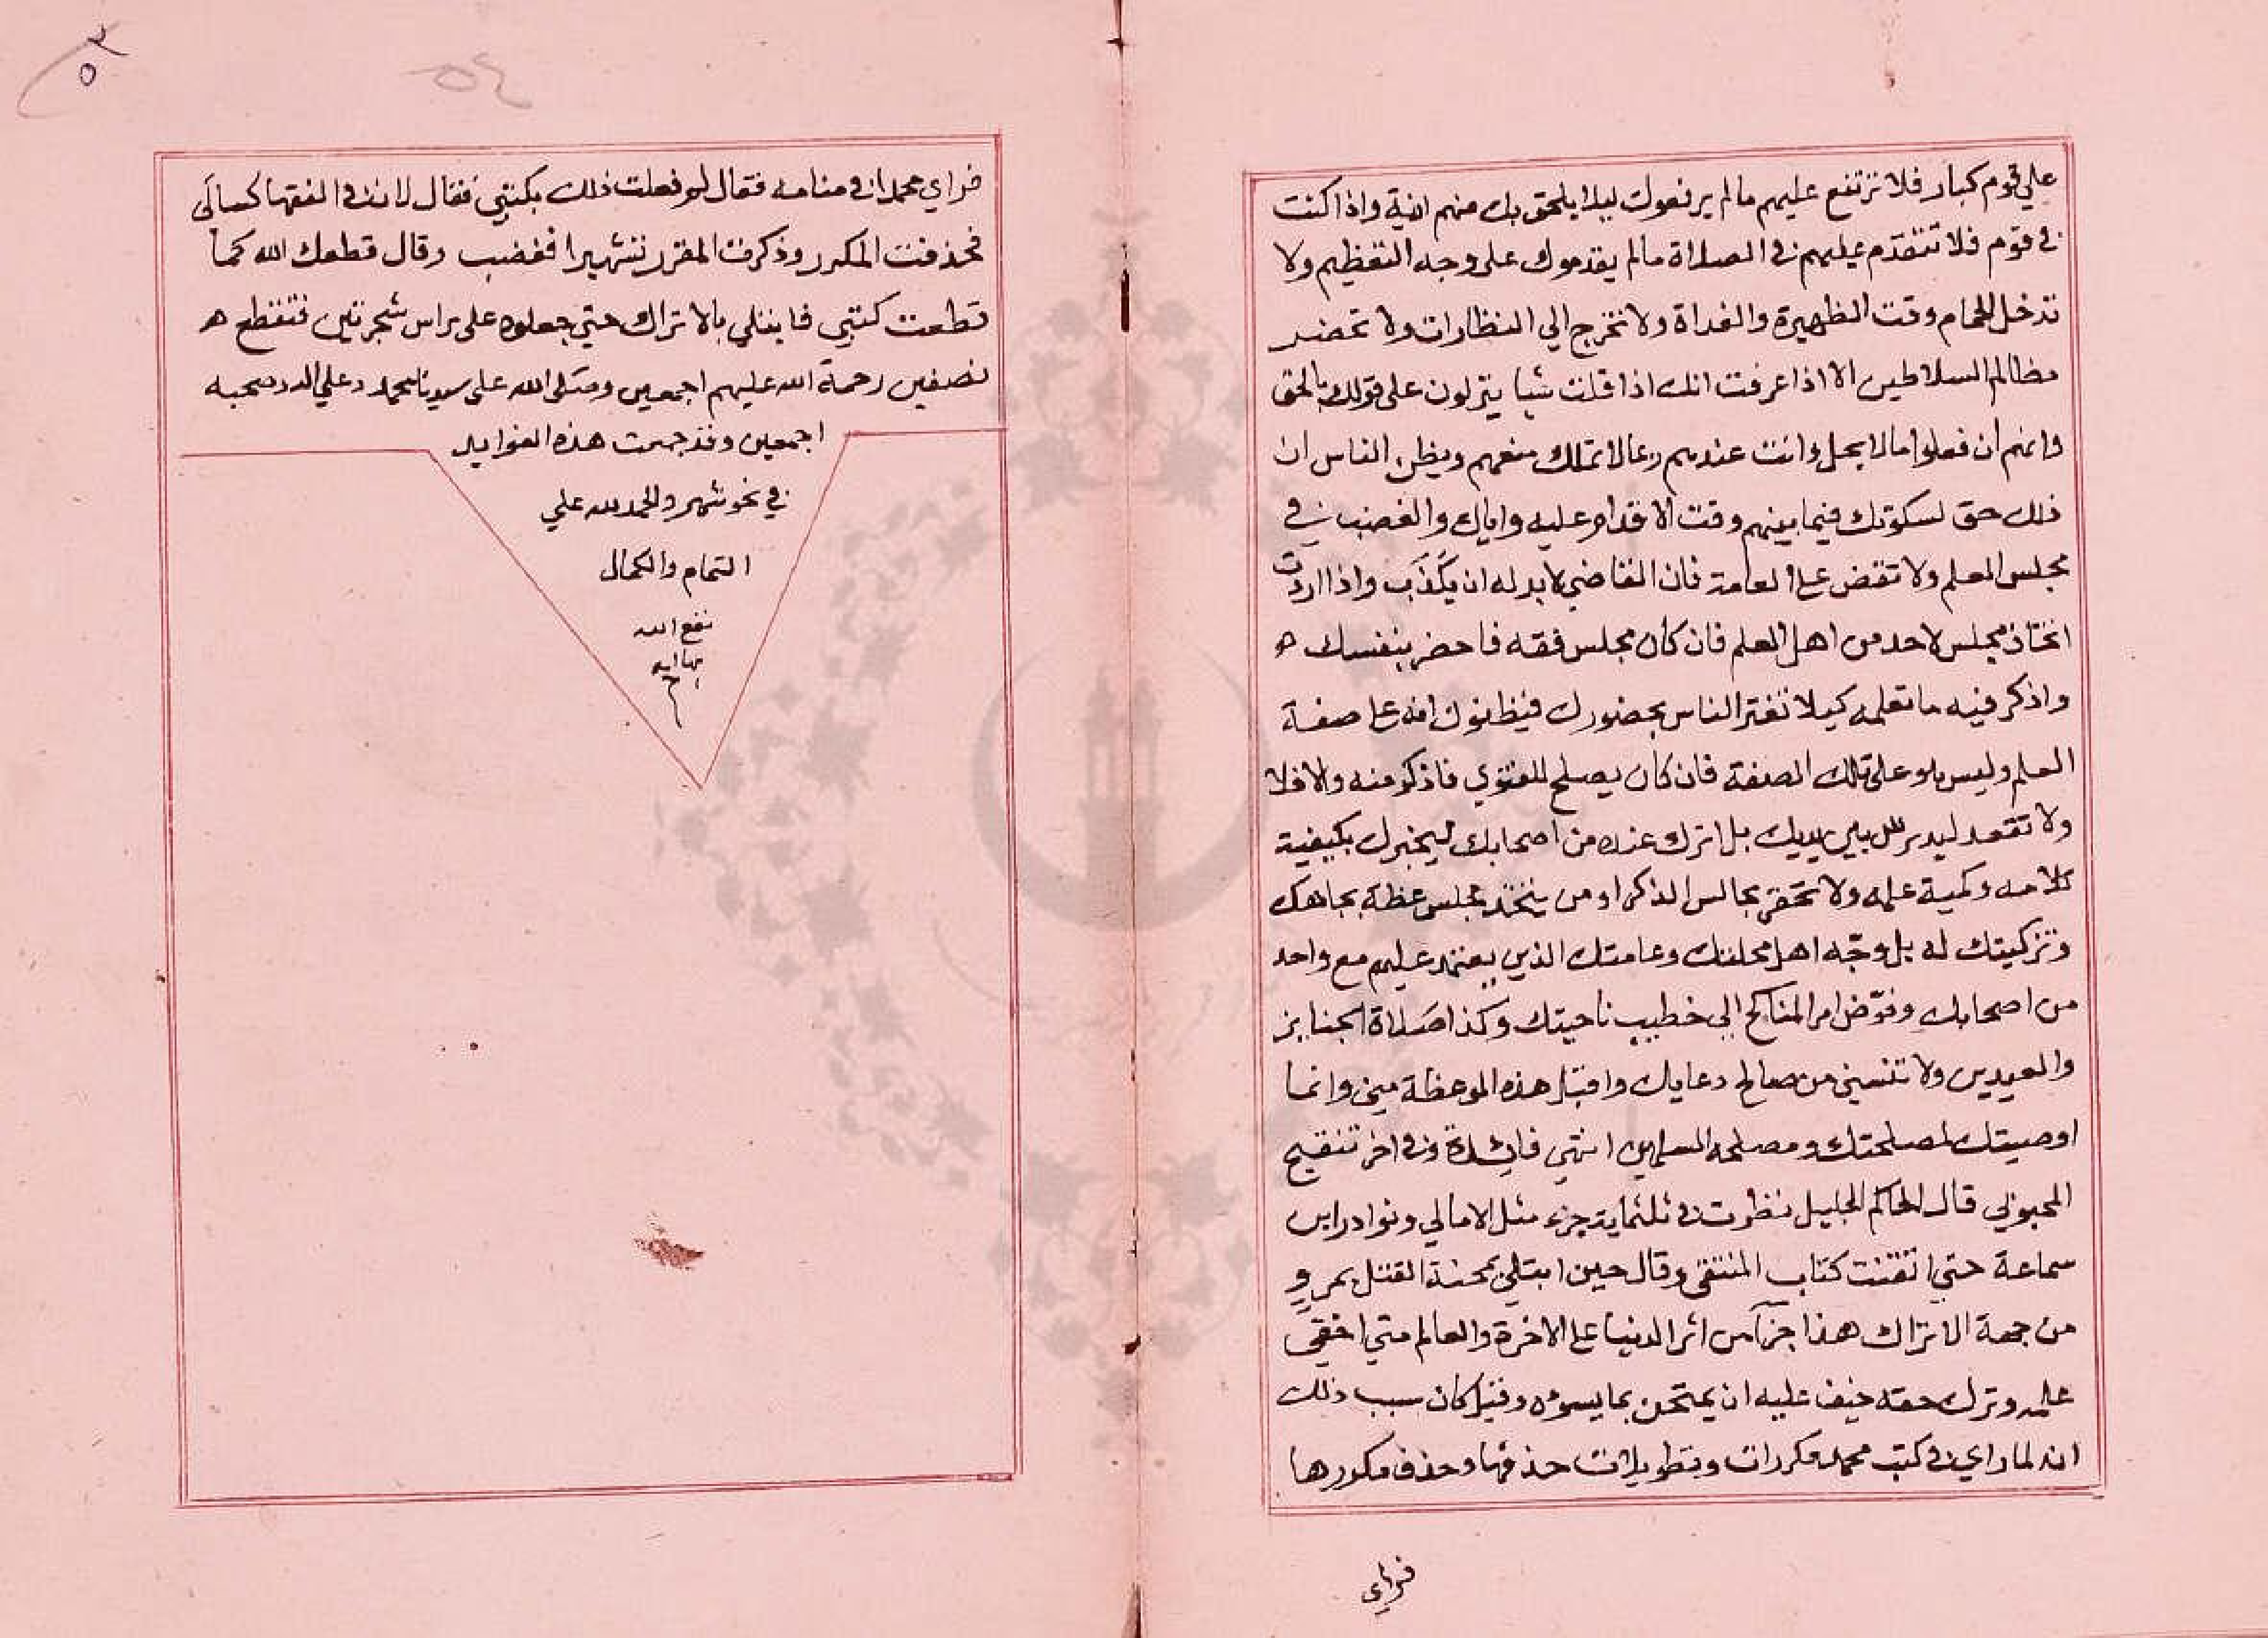 علي قوم كبار فلا ترتفع عليهم مالم يرفعوك ليلا يلحق بك منهم اذية واذا كنت
في قوم فلا تتقدم عليهم في الصلاة مالم يقدموك على وجه التعظيم ولا
تدخل الحمام وقت الظهيرة والغداة ولا تخرج الي النظارات ولا تحضر
مظالم السلاطين الا اذا عرفت انك اذا قلت شيا ينزلون على قولك بالحق
وانهم ان فعلوا مالا يحل وانت عندهم ربما لا تملك منعهم ويظن الناس ان
ذلك حق لسكوتك فيما بينهم وقت الاقدام عليه واياك والغضب في
مجلس العلم ولا تقص علي العامة فان القاضي لا بد له ان يكذب واذا اردت
اتخاذ مجلس لاحد من اهل العلم فان كان مجلس فقه فاحضر بنفسك ه
واذكر فيه ما تعلمه كيلا تغتر الناس بحضورك فيظنوك انه علي صفة
العلم وليس هو على تلك الصفة فان كان يصلح للفتوي فاذكر منه والا فلا
ولا تقعد ليدرس بين يديك بل اترك عنده من اصحابك ليخبرك بكيفية
كلامه وكمية علمه ولا تحقر مجالس الذكر او من يتخذ مجلس عظة بجاهك
وتزكيتك له بل وجّه اهل محلتك وعامتك الذين يعتمد عليهم مع واحد
من اصحابك وفوّض امر المناكح الي خطيب ناحيتك وكذا صلاة الجنايز
والعيدين ولا تنسني من صالح دعايك واقبل هذه الموعظة مني وانما
اوصيتك لمصلحتك ومصلحة المسلمين انتهي فايدة وفي اخر تنقيح
المحبوبي قال الحاكم الجليل نظرت في ثلثماية جزء مثل الامالي ونوادر ابن
سماعة حتي اتقنت كتاب المنتقى وقال حين ابتلي بمحنة القتل بمرو
من جهة الاتراك هذا جزآ من اثر الدنيا علي الاخرة والعالم متي اخفي
علمه وترك حقه خيف عليه ان يمتحن بما يسوه وقيل كان سبب ذلك
انه لما راي في كتب محمد مكررات وتطويلات حذفها وحذف مكررها
فراي
٥٢
٥٤
فراي محمدا في منامه فقال لو فعلت ذلك بكتبي فقال لان في الفقها كسالي
فحذفت المكرر وذكرت المقرر تشهيرا فغضب وقال قطعك الله كما
قطعت كتبي فابتلي بالاتراك حتي جعلوه على راس شجرتين فتقطع ه
نصفين رحمة الله عليهم اجمعين وصلى الله على سيدنا محمد وعلي اله وصحبه
اجمعين وقد جمعت هذه الفوايد
في نحو شهر والحمد لله علي
التمام والكمال
نفع الله
بها امين